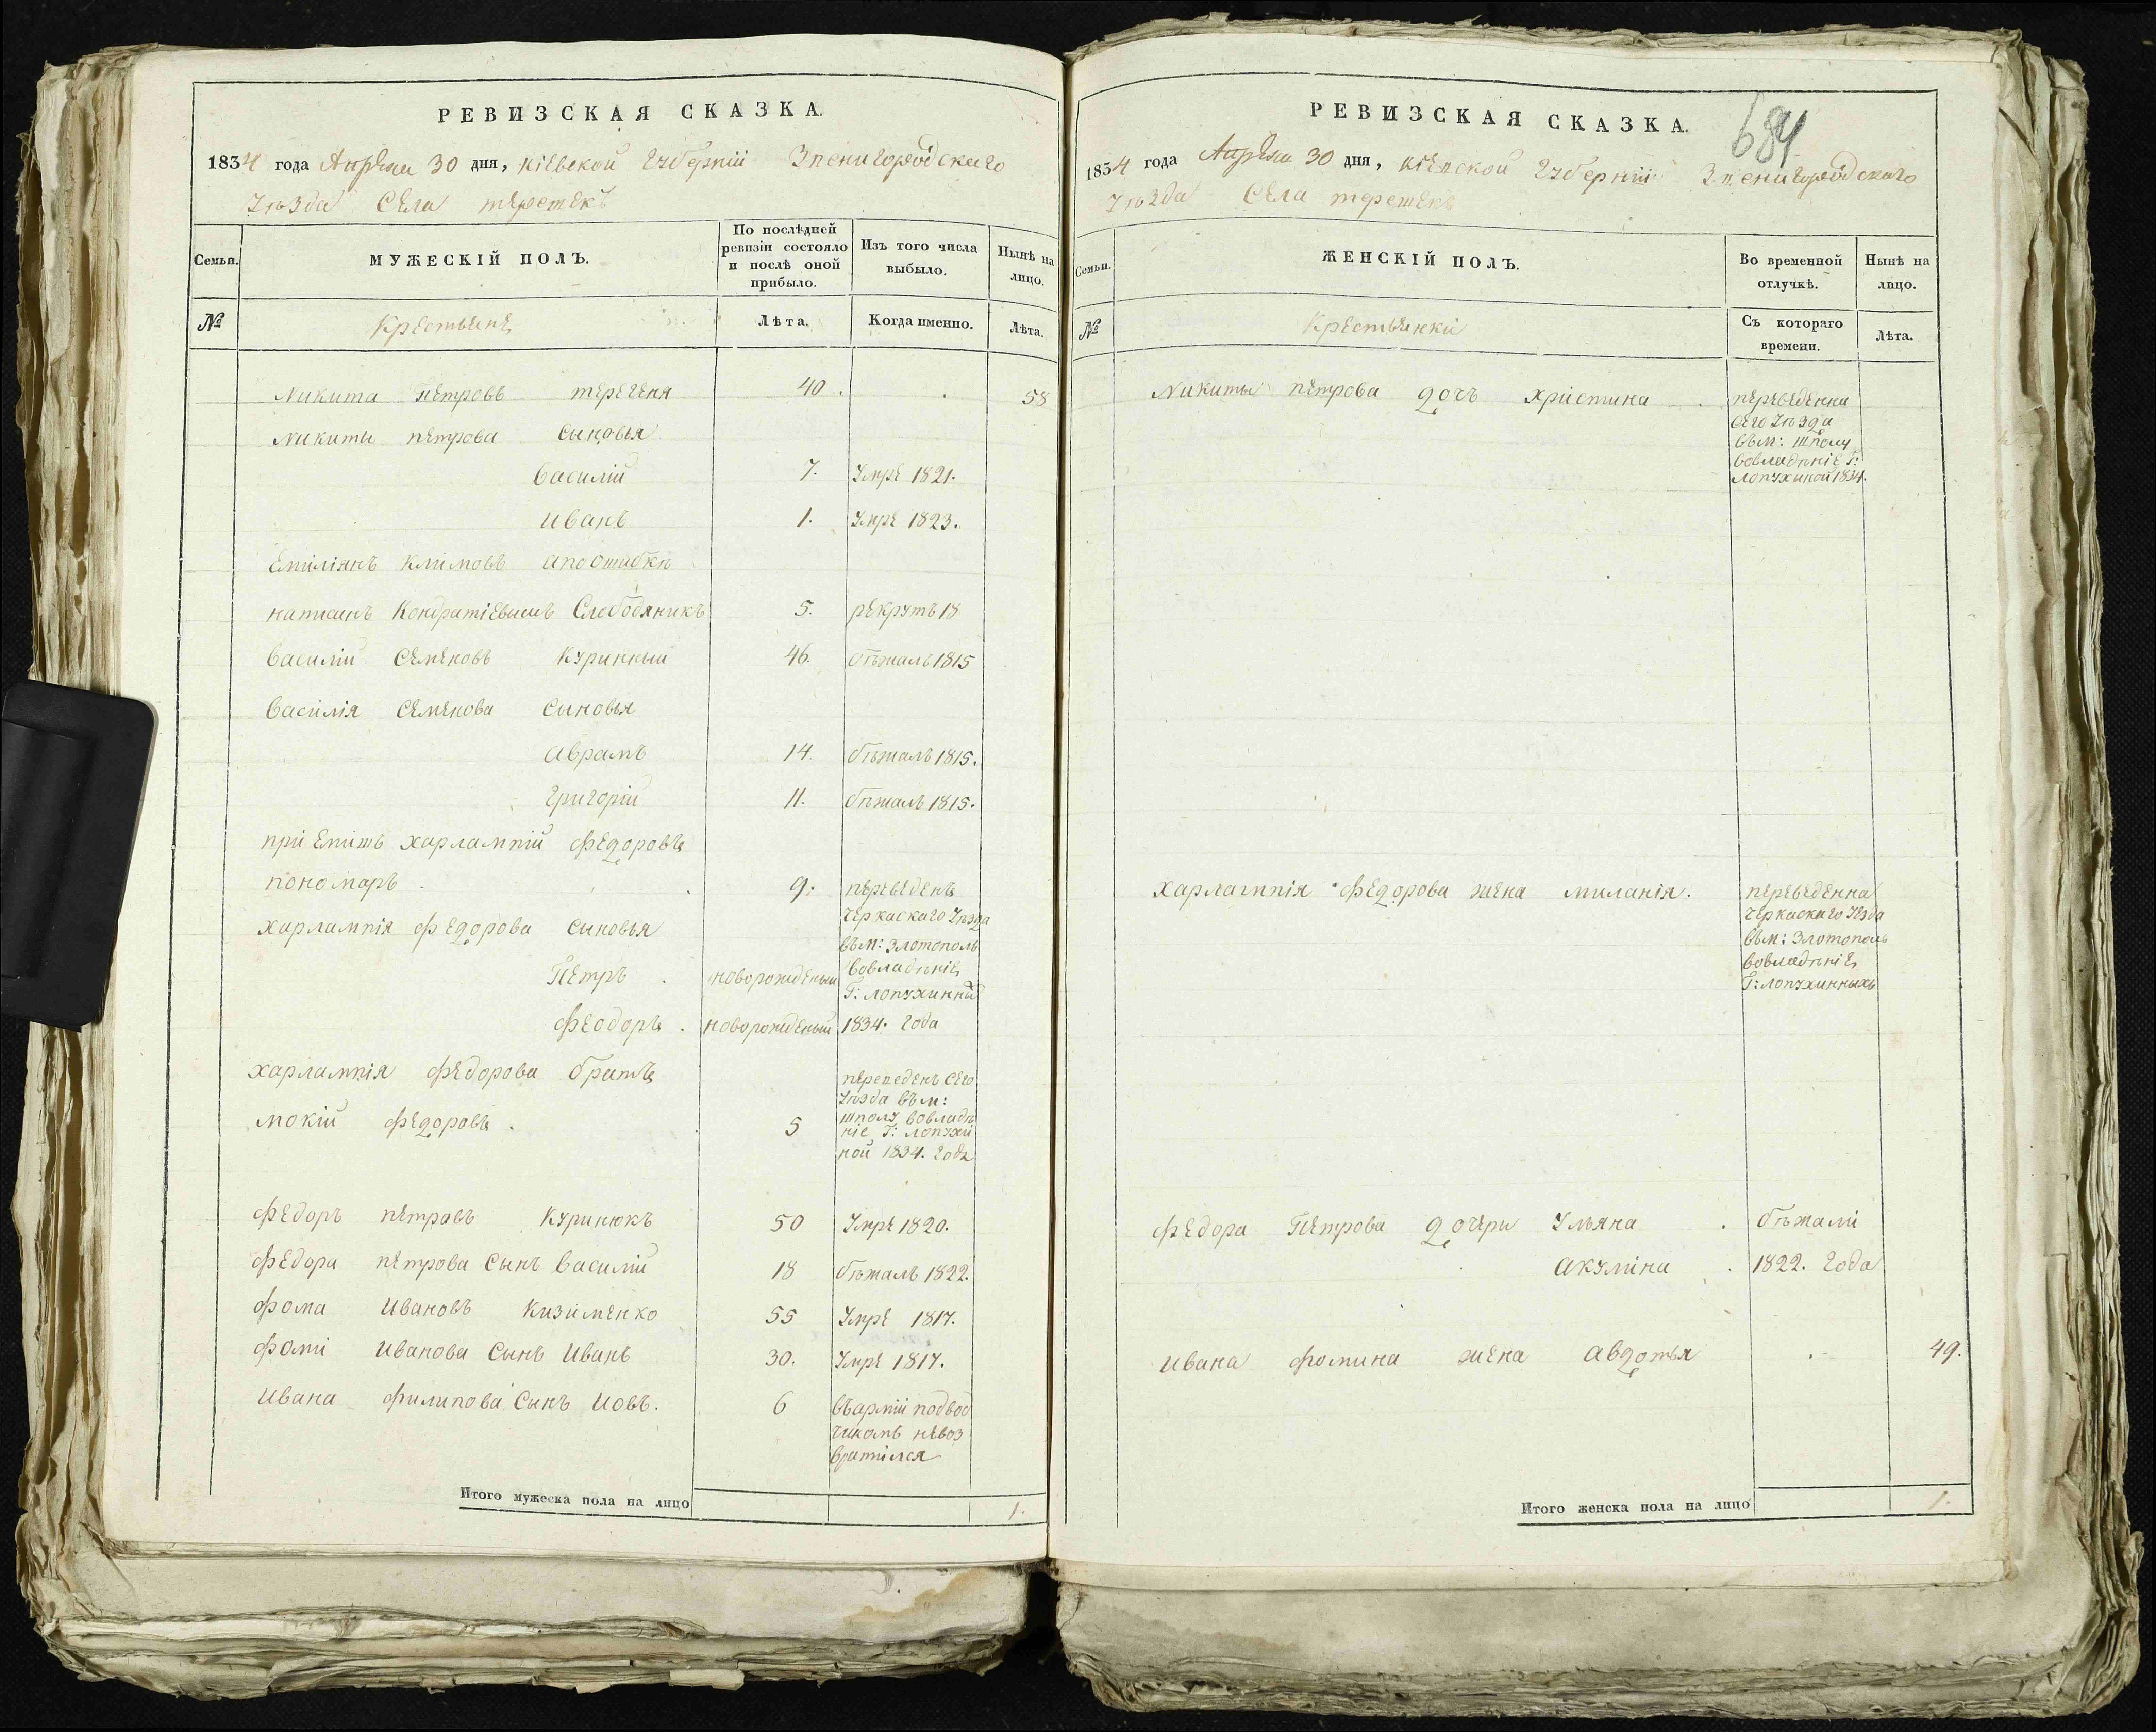 РЕВИЗСКАЯ СКАЗКА.
1834 года Апреля 30 дня, Кіевской Губерніи Звенигородскаго
Уѣзда Села терешекъ
Семьи.
МУЖЕСКІЙ ПОЛЪ.
По послѣдней
ревизіи состояло
и послѣ оной
прибыло.
Изъ того числа
выбыло.
Нынѣ на
лицо.
№
Крестьяне
Лѣта.
Когда именно.
Лѣта.
Никита Петровъ 40. 58
Никиты петрова сыновья
василій 7. Умре 1821.
иванъ 1. Умре 1823.
Емиліянъ Климовъ апоошибкѣ
написанъ Кондратіевымъ Слободяникъ 5. рекрутъ 18
василій Семеновъ Куринный 46. бѣжалъ 1815
василія Семенова сыновья
аврамъ 14. бѣжалъ 1815.
григорій 11. бѣжалъ 1815.
пріемишъ харлампій федоровъ
пономарь 9. переведенъ
черкаскаго Уѣзда
харлампія федорова сыновья
въ м: Злотополь
Петръ новорожденый вовладѣніе
Г: лопухинны
феодоръ новорожденый 1834. года
харлампія федорова братъ переведенъ сего
Уѣзда въ м:
мокій федоровъ 5 шполу вовладѣ
ніе Г: лопухи
ной 1834. года
федоръ петровъ Куринюкъ 50 Умре 1820.
федора петрова сынъ василій 18 бѣжалъ 1822.
фома ивановъ Кизименко 55 Умре 1817.
фоми иванова сынъ иванъ 30. Умре 1817.
ивана филипова сынъ иовъ. 6 въарміи подвод
чикомъ невоз
вратился
Итого мужеска пола на лицо 1.
РЕВИЗСКАЯ СКАЗКА.
684
1834 года Апреля 30 дня, Кіевской Губерніи Звенигородскаго
Уѣзда Села терешекъ
Семьи.
ЖЕНСКІЙ ПОЛЪ.
Во временной
отлучкѣ.
Нынѣ на
лицо.
№
Крестьянки
Съ котораго
времени.
Лѣта.
Никиты петрова дочь христина переведенна
сего Уѣзда
въ м: шполу
вовладѣніе Г:
лопухиной 1834.
харлампія федорова жена миланія. переведенна
черкаскаго Уѣзда
въ м: Злотополь
вовладѣніе
Г: лопухинныхъ
федора Петрова дочери Ульяна бѣжали
акулина 1822. года
ивана фомина жена авдотья 49.
Итого женска пола на лицо 1.